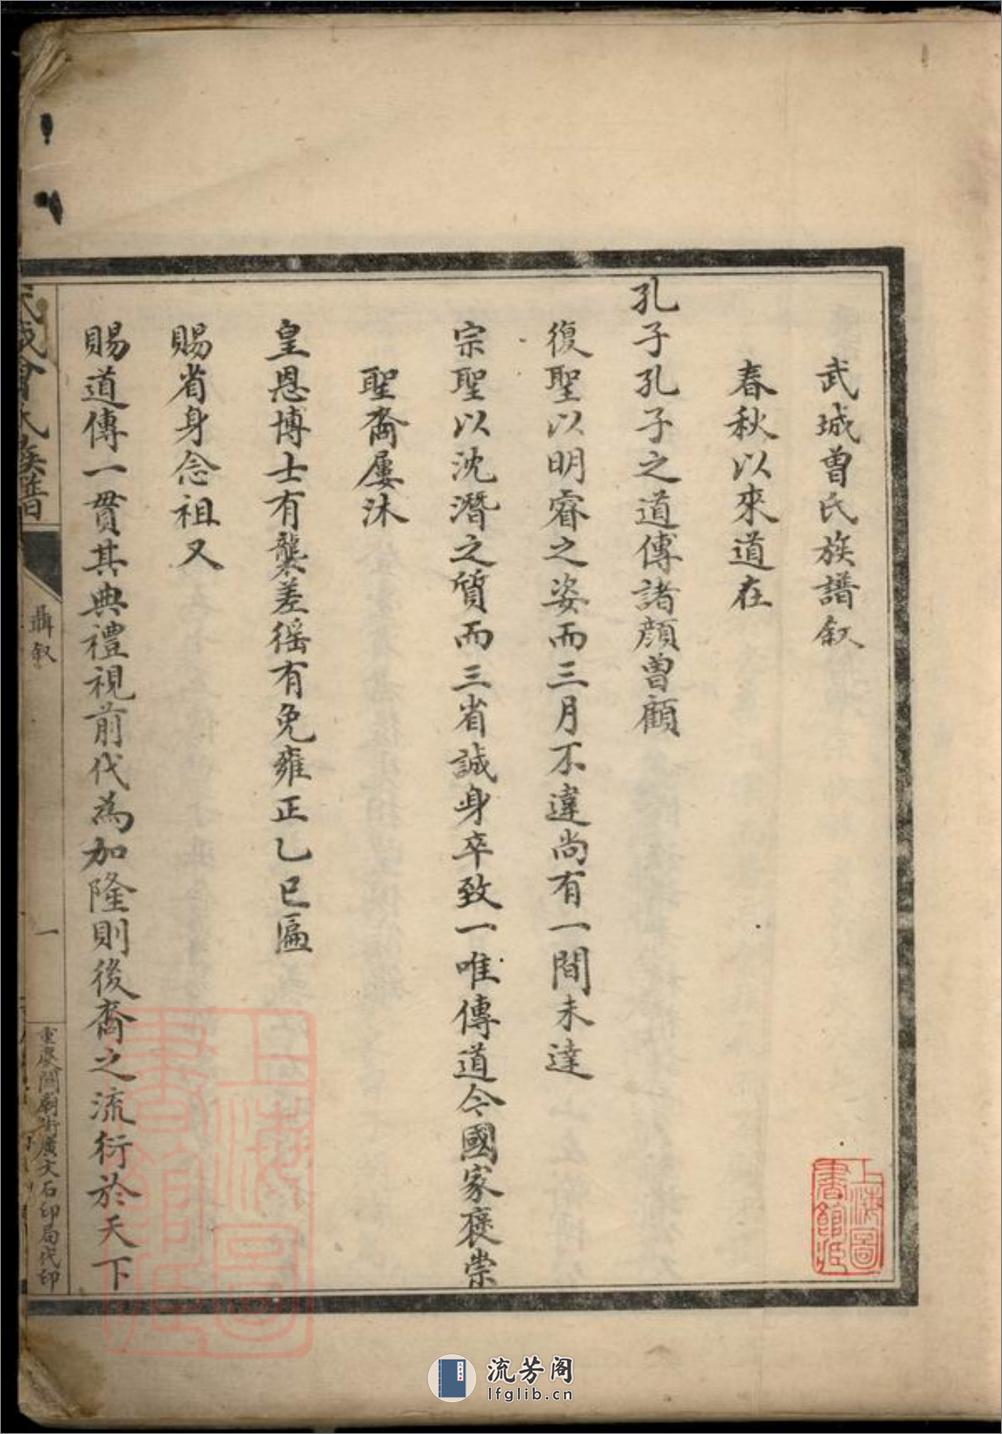 武城曾氏族譜叙
春秋以來道在
孔子孔子之道傳諸顔曾顧
復聖以明睿之姿而三月不違尚有一間未達
宗聖以沈潛之質而三省誠身卒致一唯傳道今國家褒崇
聖裔屢沐
皇恩博士有襲差徭有免雍正乙巳匾
賜省身念祖又
賜道傳一貫其典禮視前代為加隆則後裔之流衍於天下
武城曾氏族譜
聶叙
一
重慶關廟街廣文石印局代印
上海圖
書館藏
上海圖
書館藏
流芳阁
lfglib.cn